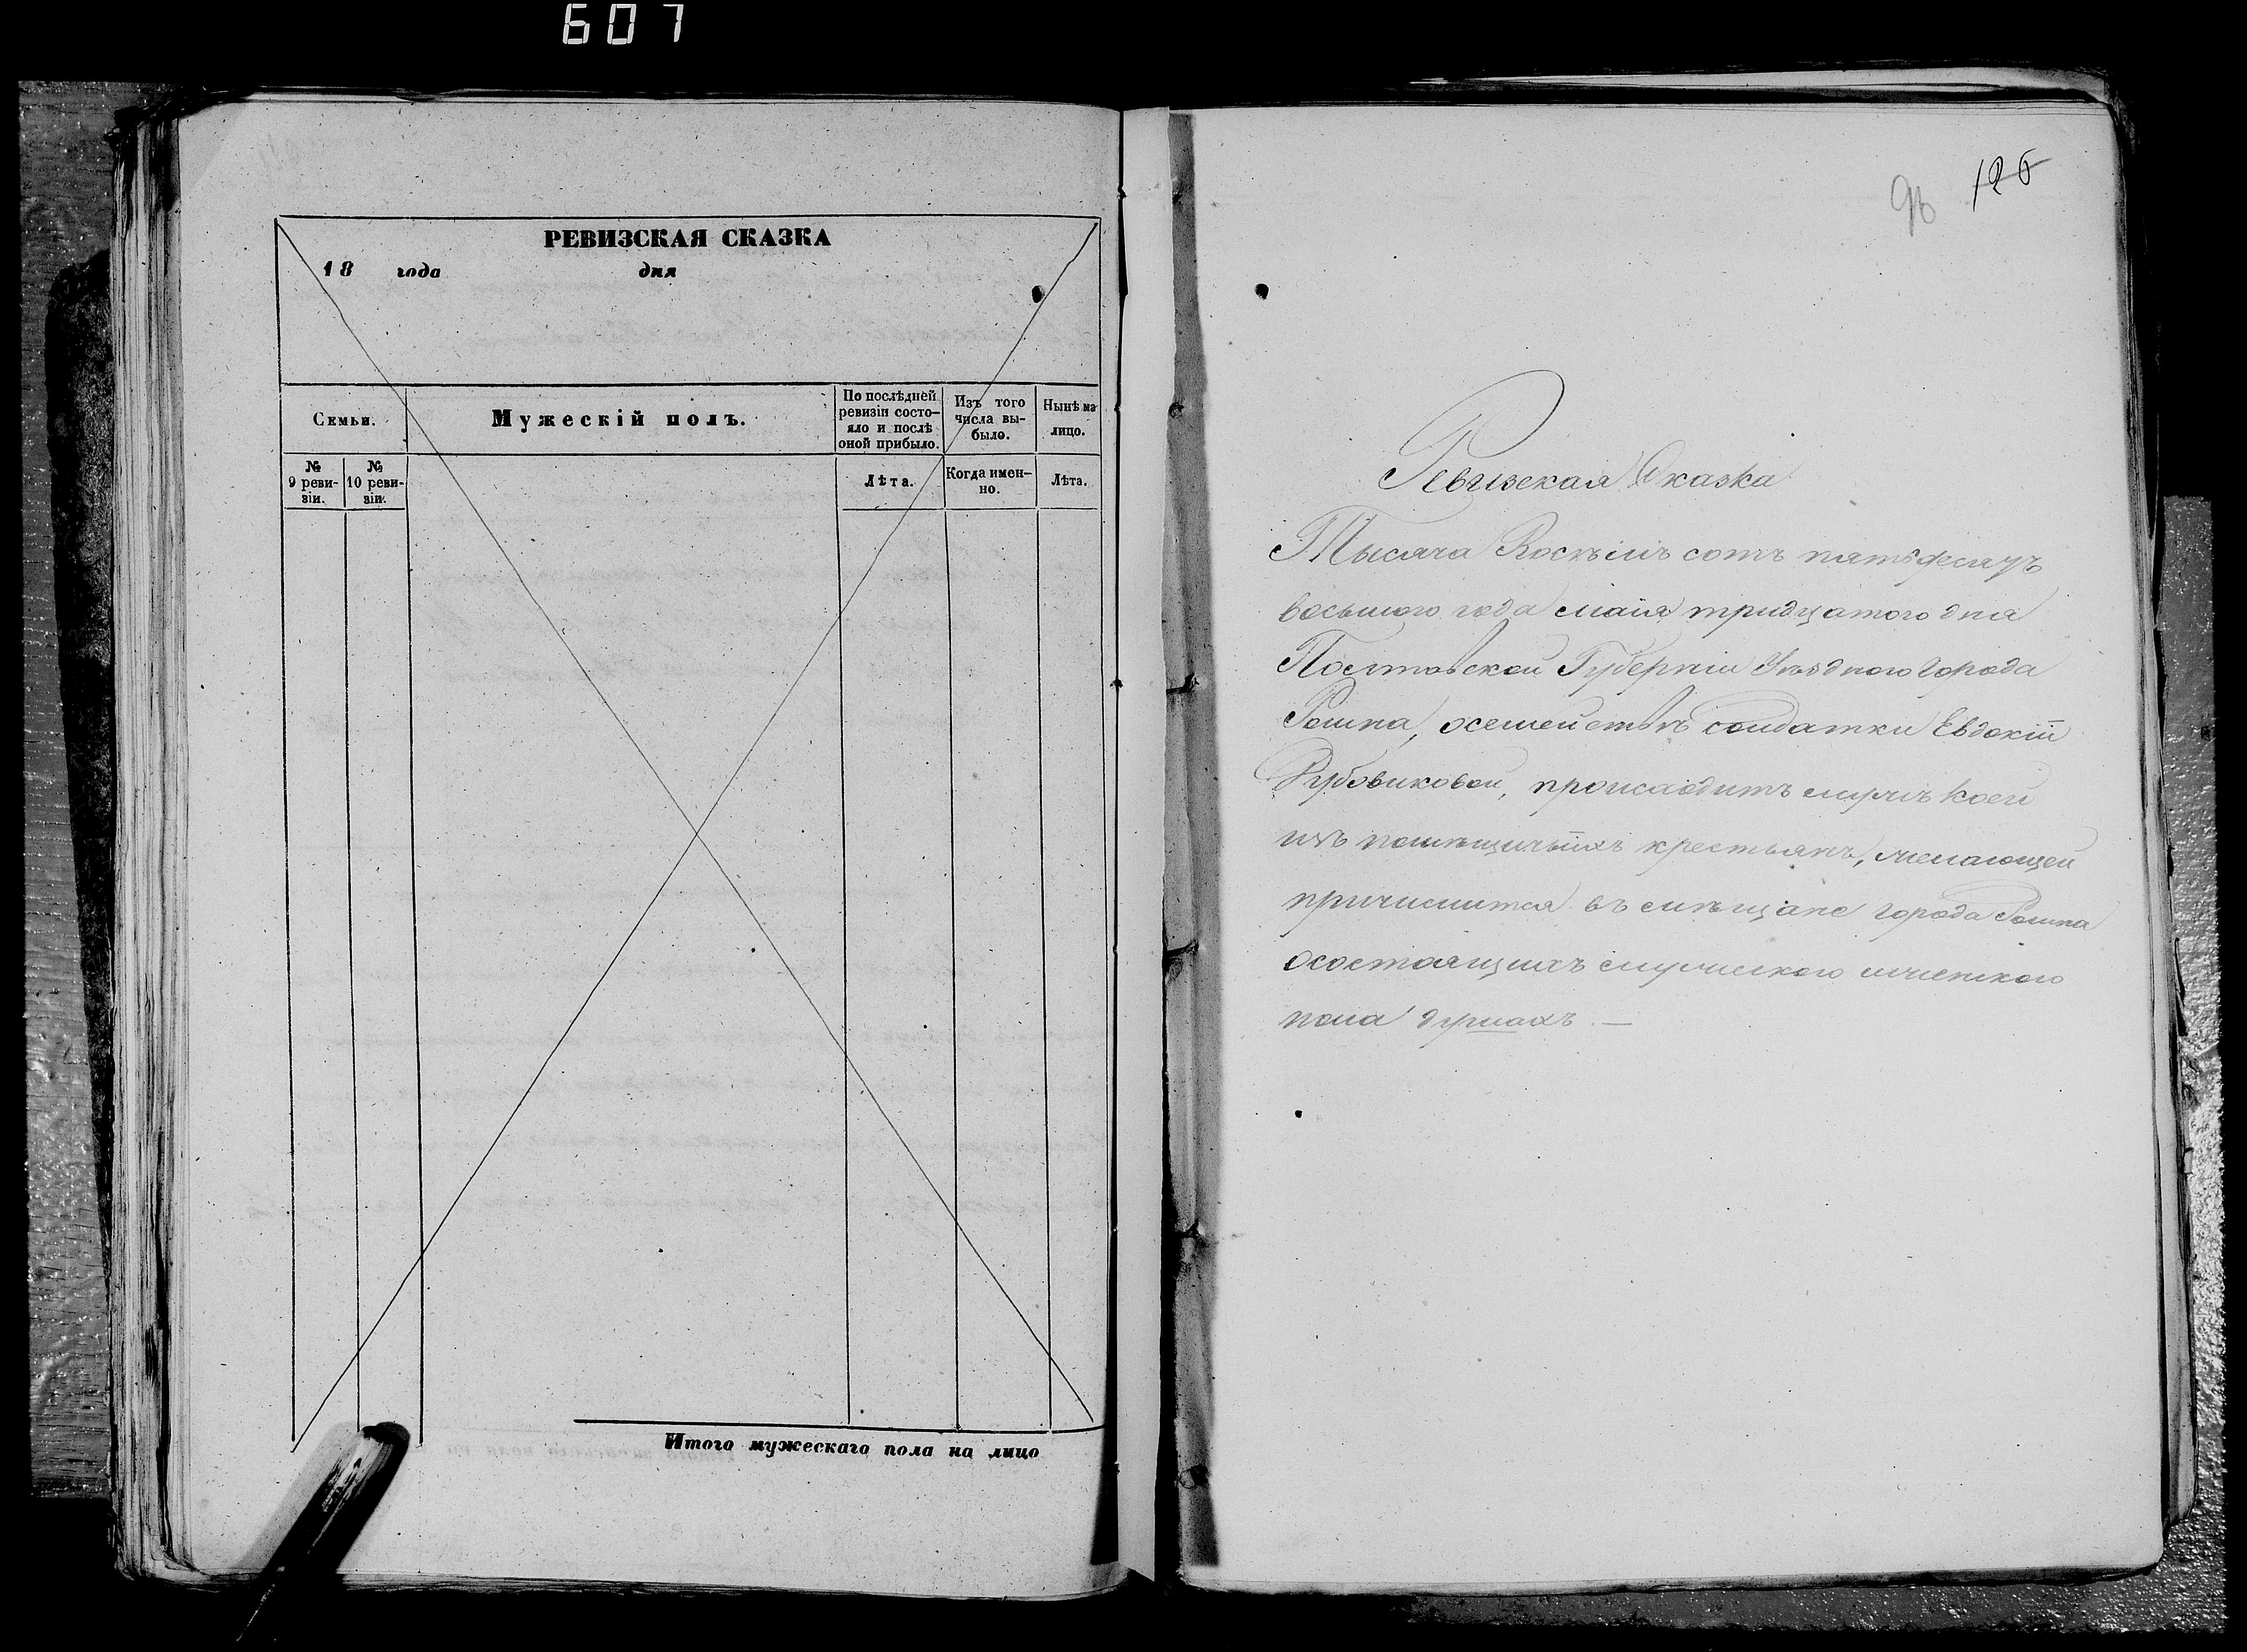 607
РЕВИЗСКАЯ СКАЗКА
18 года дня
Семьи.
Мужескій полъ.
По послѣдней
ревизіи состо-
яло и послѣ
оной прибыло.
Изъ того
числа вы-
было.
Нынѣ на
лицо.
№
9 реви-
зіи.
№
10 реви-
зіи.
Лѣта.
Когда имен-
но.
Лѣта.
Итого мужескаго пола на лицо
126
Ревизская Сказка
Тысяча Восѣмь сотъ пятьдесятъ
восьмого года маія тридцатого дня
Полтавской Губерніи Уѣздного Города
Ромна, осемействѣ солдатки Евдокіи
Дубовиковой, происходитъ мужъ коей
изъ помѣщичьихъ крестьянъ, желающей
причислится въ мѣщане города Ромна
осостоящихъ мужеского иженского
пола душахъ. —